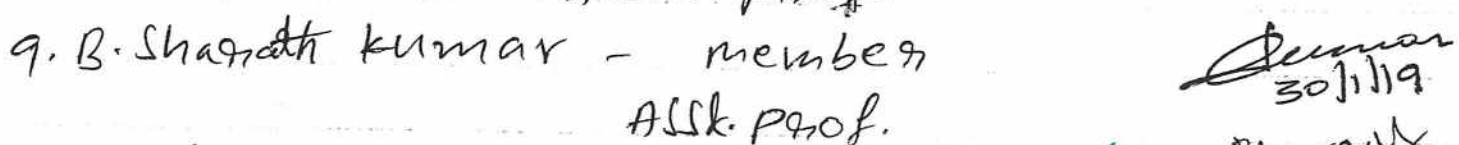 9. B. Sharath kumar - member
Asst. Prof.
30/1/19